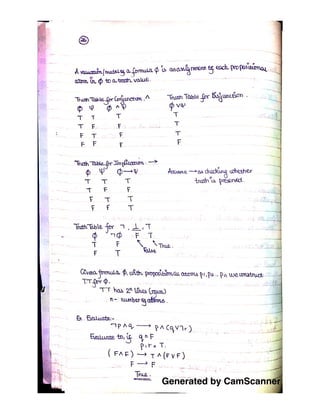 A valuation/model of a formula φ is assignment of each propositional
atom in φ to a truth value.
Truth Table for Conjunction ∧ Truth Table for Disjunction.
φ ψ φ ∧ ψ φ ∨ ψ
T T T T
T F F T
F T F T
F F F F
Truth Table for Implication →
φ ψ φ → ψ Assume → as checking whether
T T T truth is preserved.
T F F
F T T
F F T
Truth Table for ¬, ⊥, T
φ ¬φ F T
T F True.
F T False
Given formula φ with propositional atoms p1, p2 .. pn we construct
TT for φ.
TT has 2ⁿ lines (rows)
n - number of atoms.
Ex Evaluate:-
¬p ∧ q → p ∧ (q ∨ ¬r)
Evaluate to, if q = F
p, r = T.
(F ∧ F) → T ∧ (F ∨ F)
F → F
True.
Generated by CamScanner